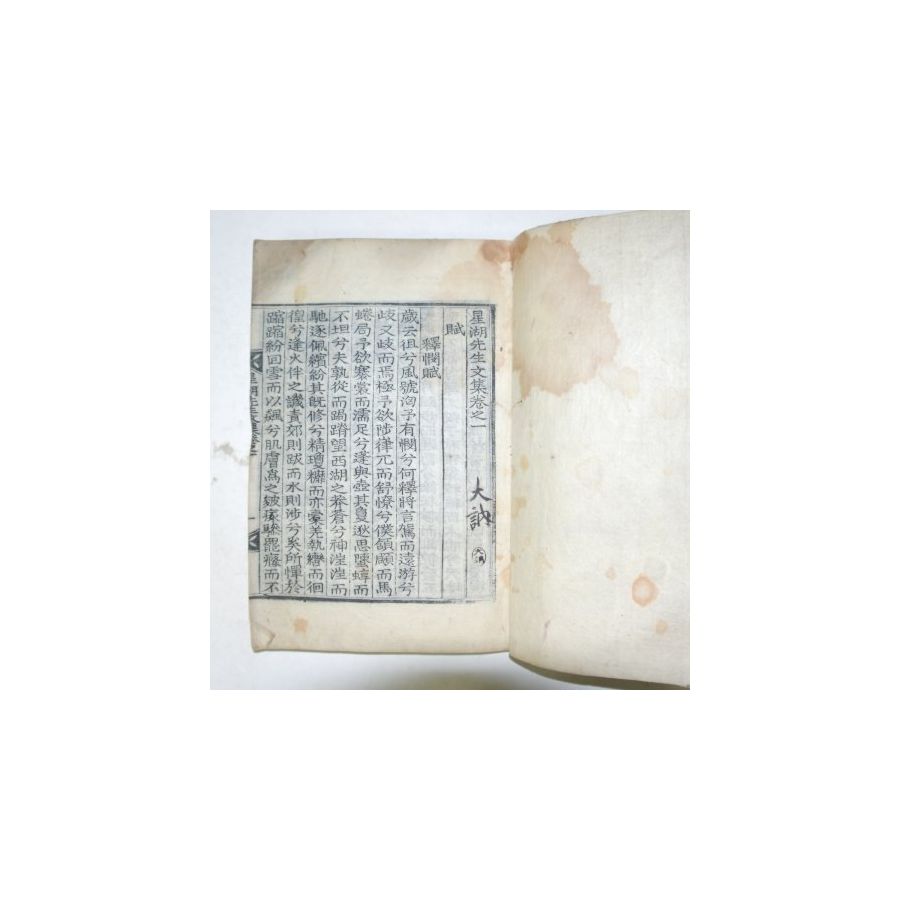 星湖先生文集卷之一
大訥
賦
釋憫賦
歲云徂兮風號洶予有憫兮何釋將言駕而遠游兮
歧又歧而焉極予欲陟嵂兀而舒憭兮僕頷顑而馬
蜷局予欲褰裳而濡足兮逢與壺其敻逖思
不坦兮夫孰從而蹋蹐望西湖之莽蒼兮神湟湟而
馳逐佩繽紛其旣修兮精瓊糜而亦橐羌執轡而徊
徨兮逢火伴之譏責郊則跋而水則涉兮奚所憚於
躘躘紛回雪而以飆兮肌膚爲之皴瘃驂罷癃而不